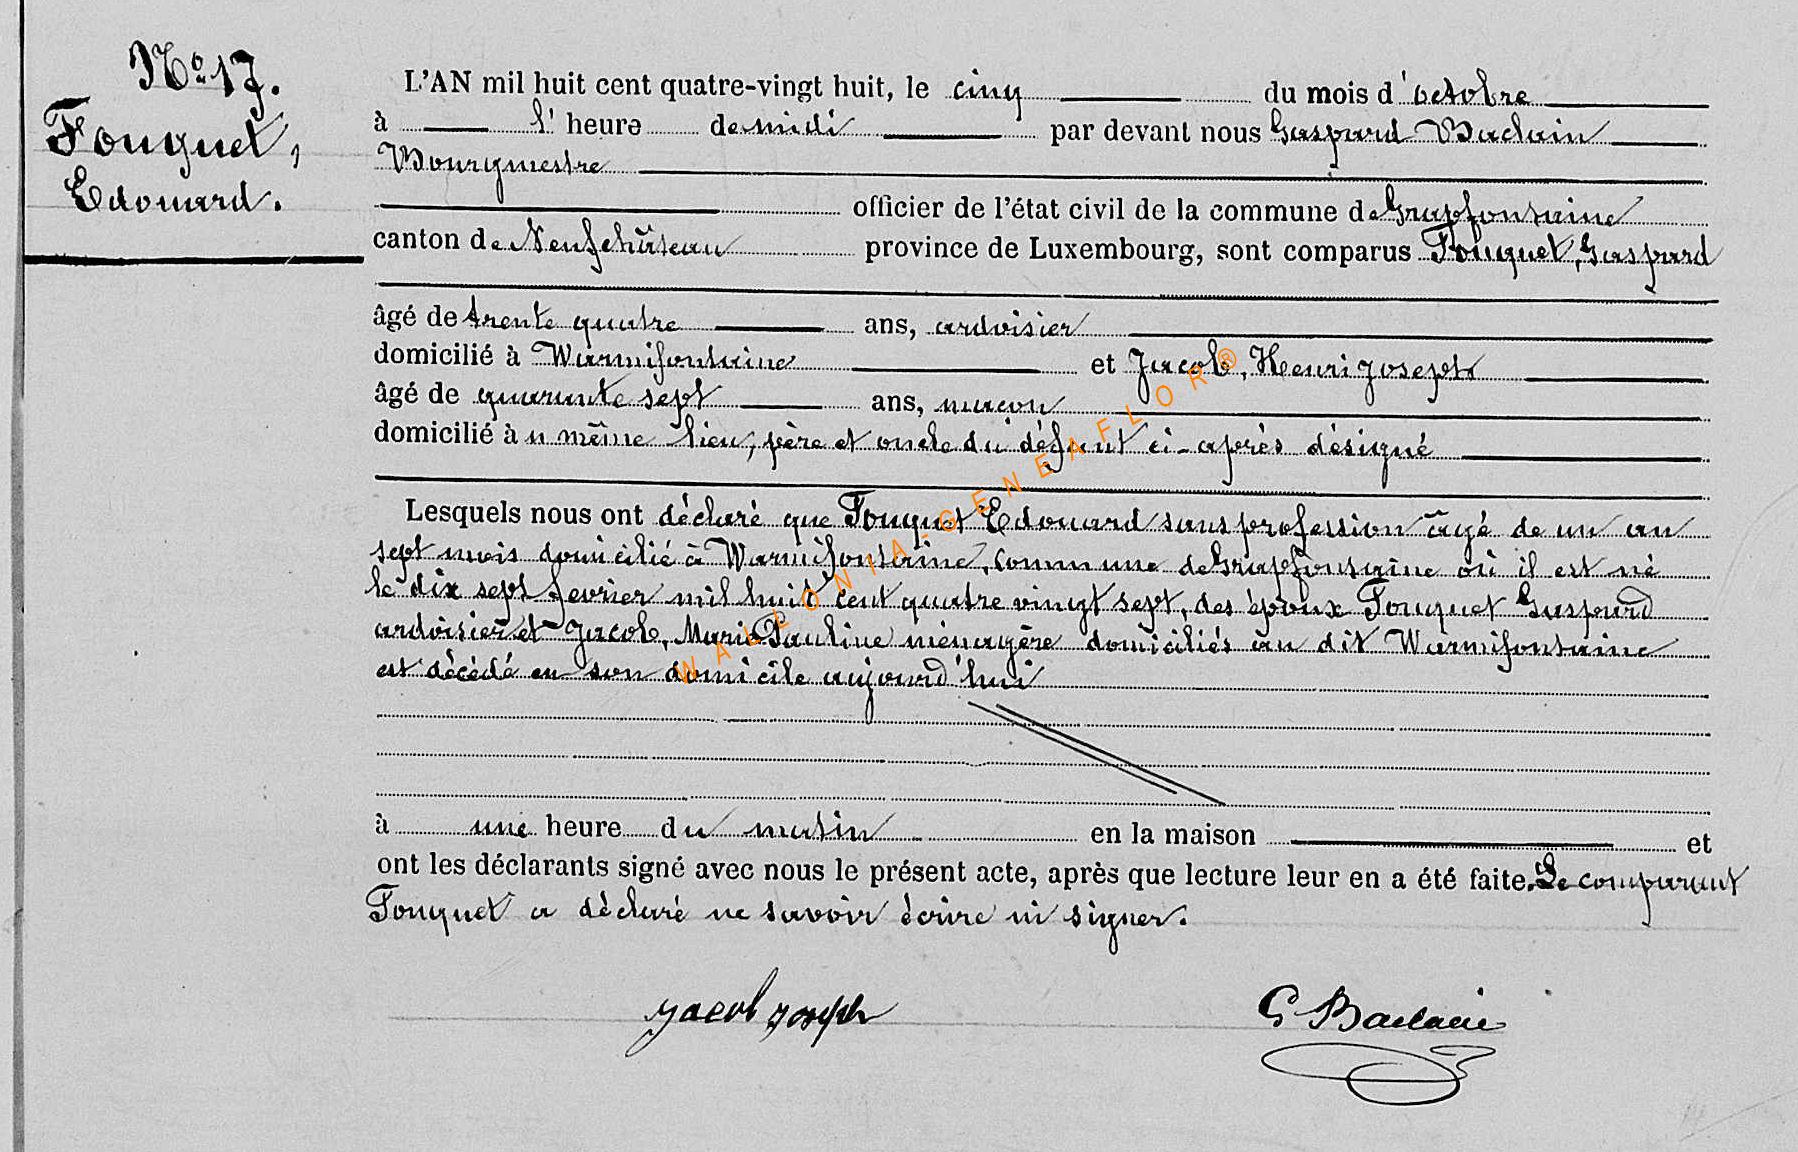 No 17.
Fouquet,
Edouard.
L'AN mil huit cent quatre-vingt huit, le cinq du mois d'octobre
à l'heure de midi par devant nous Gaspard Baclain
Bourgmestre
officier de l'état civil de la commune de Grapfontaine
canton de Neufchâteau province de Luxembourg, sont comparus Fouquet, Gaspard
âgé de trente quatre ans, ardoisier
domicilié à Warmifontaine et Jacob, Henri Joseph
âgé de quarante sept ans, maçon
domicilié àu même lieu, père et oncle du défunt ci-après désigné
Lesquels nous ont déclaré que Fouquet Edouard sans profession âgé de un an
sept mois domicilié à Warmifontaine, commune de Grapfontaine où il est né
le dix sept fevrier mil huit cent quatre vingt sept, des époux Fouquet Gaspard
ardoisier et Jacob, Marie Pauline ménagère domiciliés àu dit Warmifontaine
est décédé en son domicile aujourd'hui
à une heure du matin en la maison et
ont les déclarants signé avec nous le présent acte, après que lecture leur en a été faite. Le comparant
Fouquet a déclaré ne savoir écrire ni signer.
Jacob Joseph G Baclain
WALLONIA-GENEAFLOR®